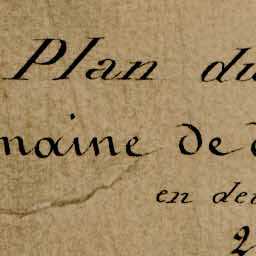 Plan du
maine de
en deu
2